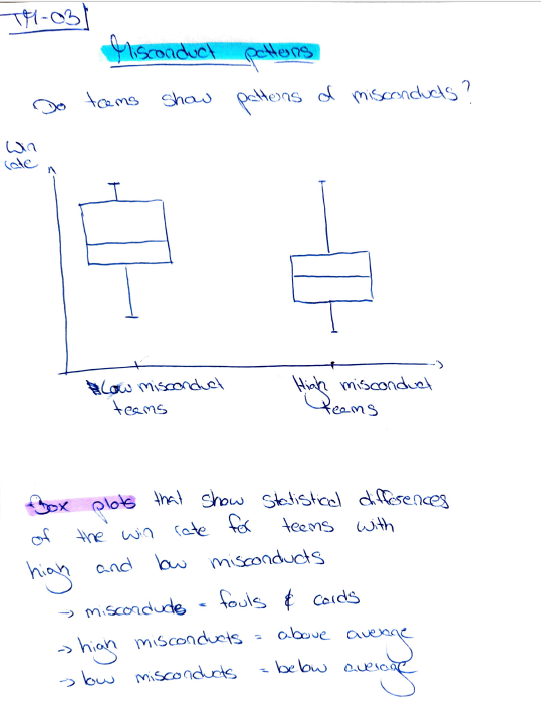 TM-03
Misconduct patterns
Do teams show patterns of misconducts?
Win
rate
Low misconduct
teams
High misconduct
teams
Box plots that show statistical differences
of the win rate for teams with
high and low misconducts
→ misconducts = fouls & cards
→ high misconducts = above average
→ low misconducts = below average